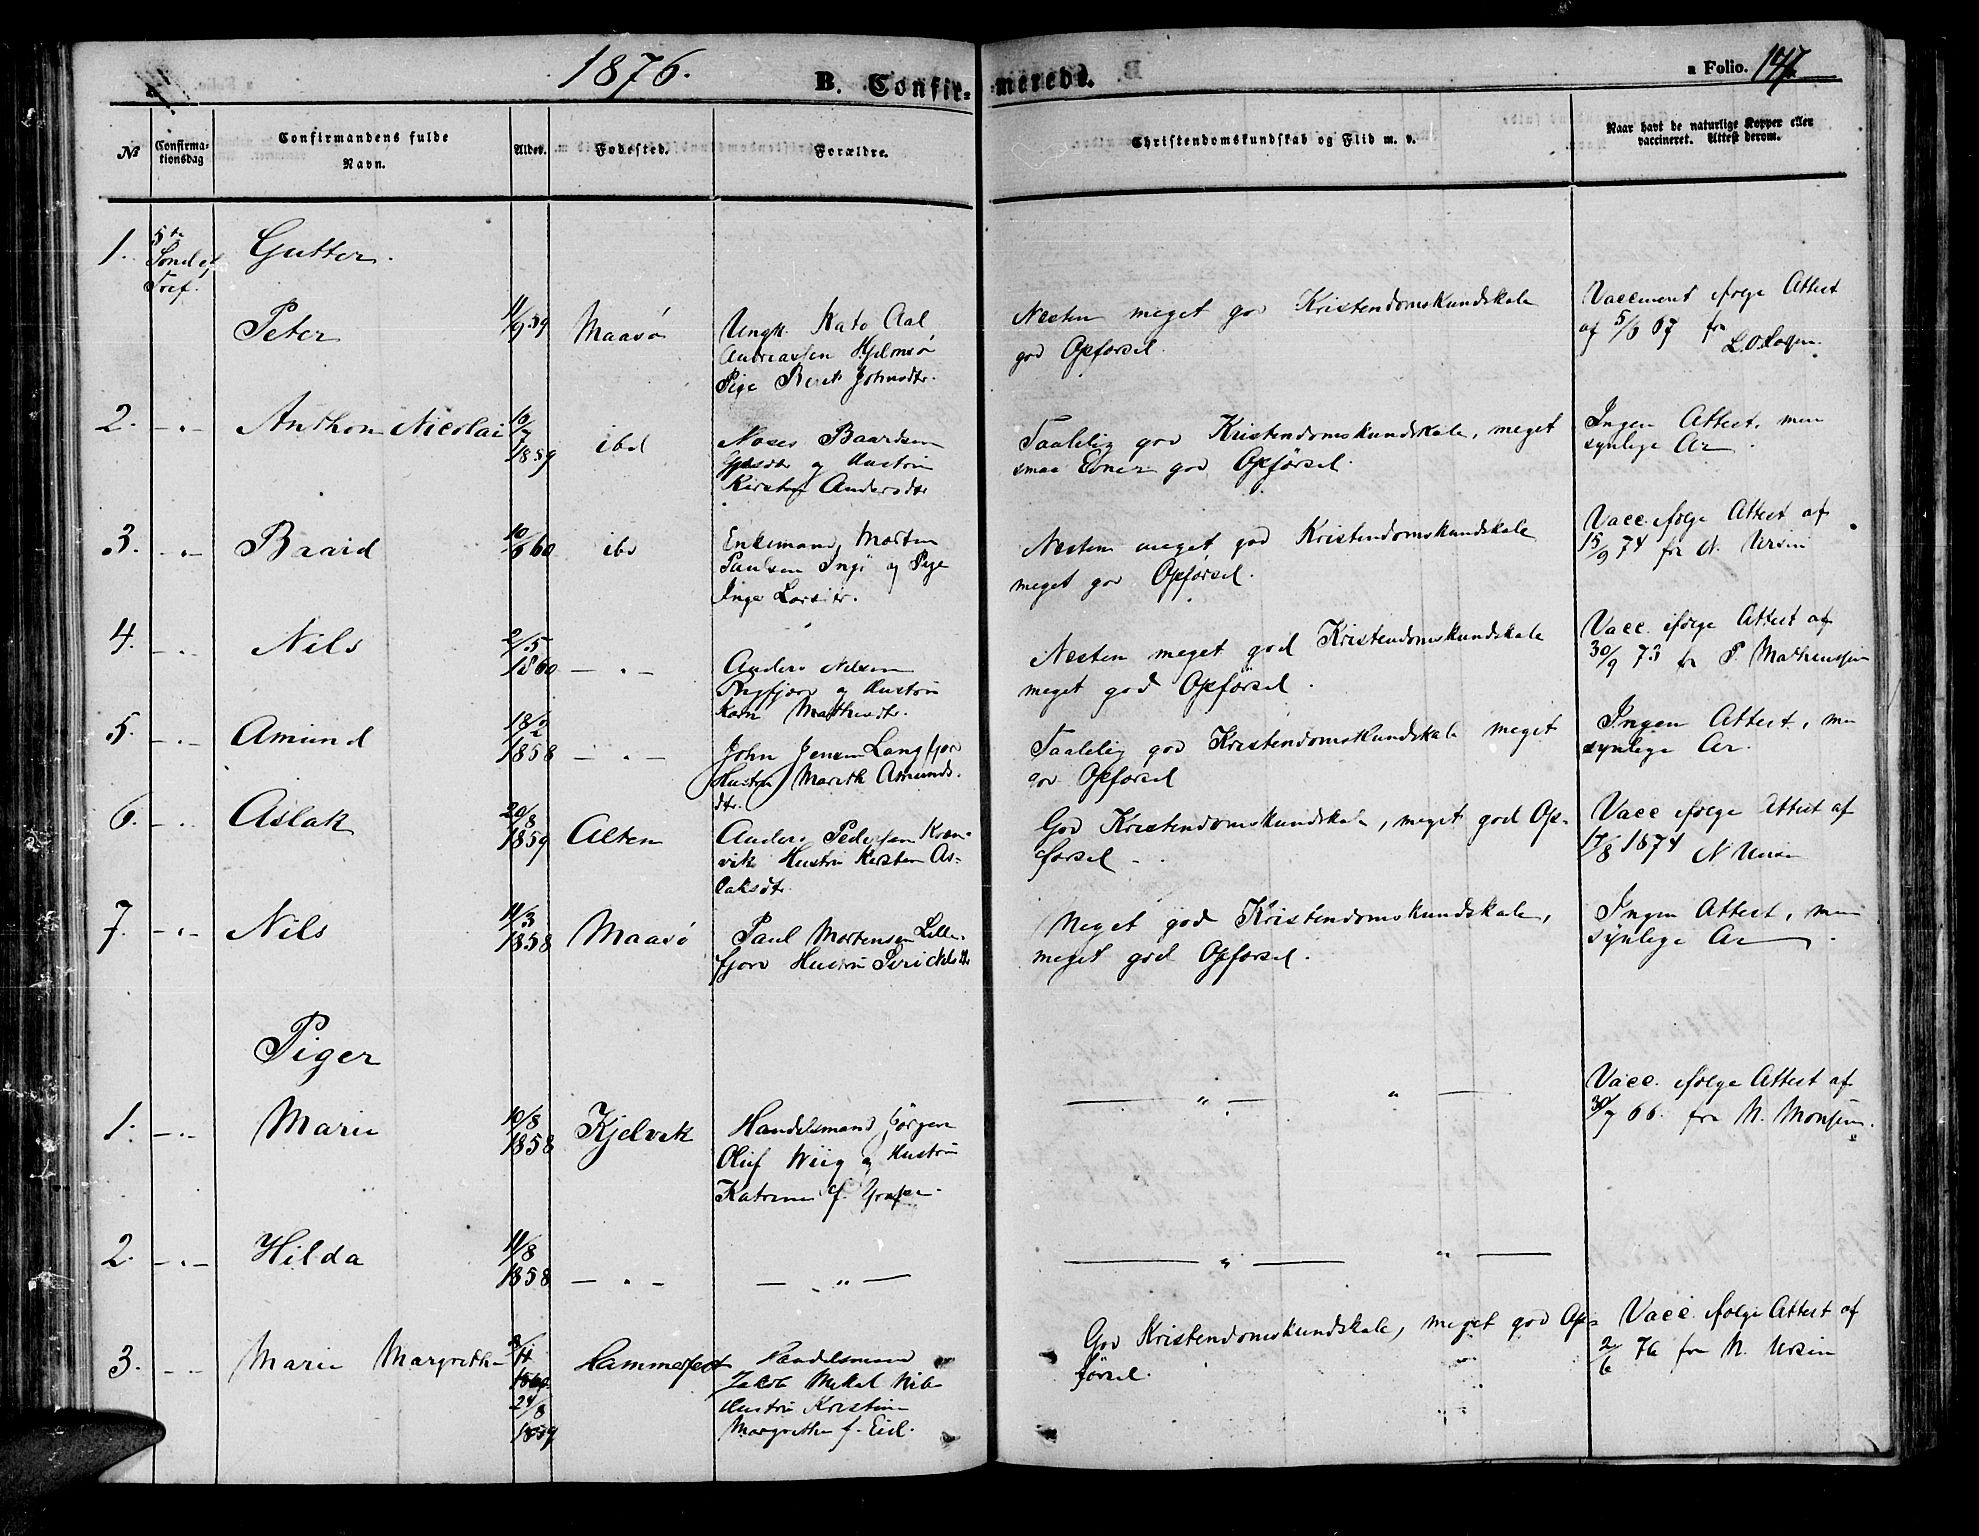 1876.
B. Confirmerede.
a Folio. 147
No
Confirmationsdag
Confirmandens fulde Navn.
Alder.
Fødested.
Forældre.
Christendomskundskab og Flid m. v.
Naar havt de naturlige Kopper eller
vaccineret. Attest derom.
1. 5te Gutter.
Sond. ef
Tref.
Peter 11/9 59 Maasø Ungk. Kato Aal
Andreassen Hjelmsø
Pige Berit Johnsdtr.
Nesten meget god Kristendomskundskab
god Opførsel.
Vaccineret ifølge Attest
af 67 fra
2. - " - Anthon Nicolai 10/7 1859 ibd Moses Baardsen
og Hustru
Kirsten Andersdtr
Taalelig god Kristendomskundskab, meget
smaa Evner god Opførsel.
Ingen Attest, men
synlige Ar
3. - " - Baard 60 ibd Enkemand Morten
Paulsen Ingø og Pige
Inge Larsdtr.
Nesten meget god Kristendomskundskab
meget god Opførsel.
Vacc. ifølge Attest af
15/9 74 fra N. Ursin
4. - " - Nils 2/5 1860 - " - Anders Nilsen
og Hustru
Karn Mathisdtr.
Nesten meget god Kristendomskundskab
meget god Opførsel.
Vacc. ifølge Attest af
30/9 73 fra P. Mathenssen
5. - " - Amund 1858 - " - John Jensen Langfjor
Hustru Mareth Amunds.
dtr.
Taalelig god Kristendomskundskab meget
god Opførsel
Ingen Attest, men
synlige Ar.
6. - " - Aslak 20/8 1859 Alten Anders Pedersen Kræn-
vik Hustru Kirsten As-
laksdtr.
God Kristendomskundskab, meget god Op-
førsel -
Vacc ifølge Attest af
17/8 1874 N Ursin
7. - " - Nils 11/3 1858 Maasø Paul Mortensen Lille-
fjord Hustru
Meget god Kristendomskundskab,
meget god Opførsel.
Ingen Attest, men
synlige Ar
Piger
1. - " - Marie 10/8 1858 Kjelvik Handelsmand Jørgen
Oluf Wiig og Hustru
Katrine f.
- " - " -
Vacc. ifølge Attest af
30/7 66. fra M. Monsen.
2. - " - Hilda 11/8 1858 - " - - " -
- " - " -
3. - " - Marie Margrethe
24/8
1859
Hammerfest Handelsmand
Jakob Mikal
Hustru Kristine
Margrethe f.
God Kristendomskundskab, meget god Op-
førsel.
Vacc. ifølge Attest af
2/6 76 fra N. Ursin